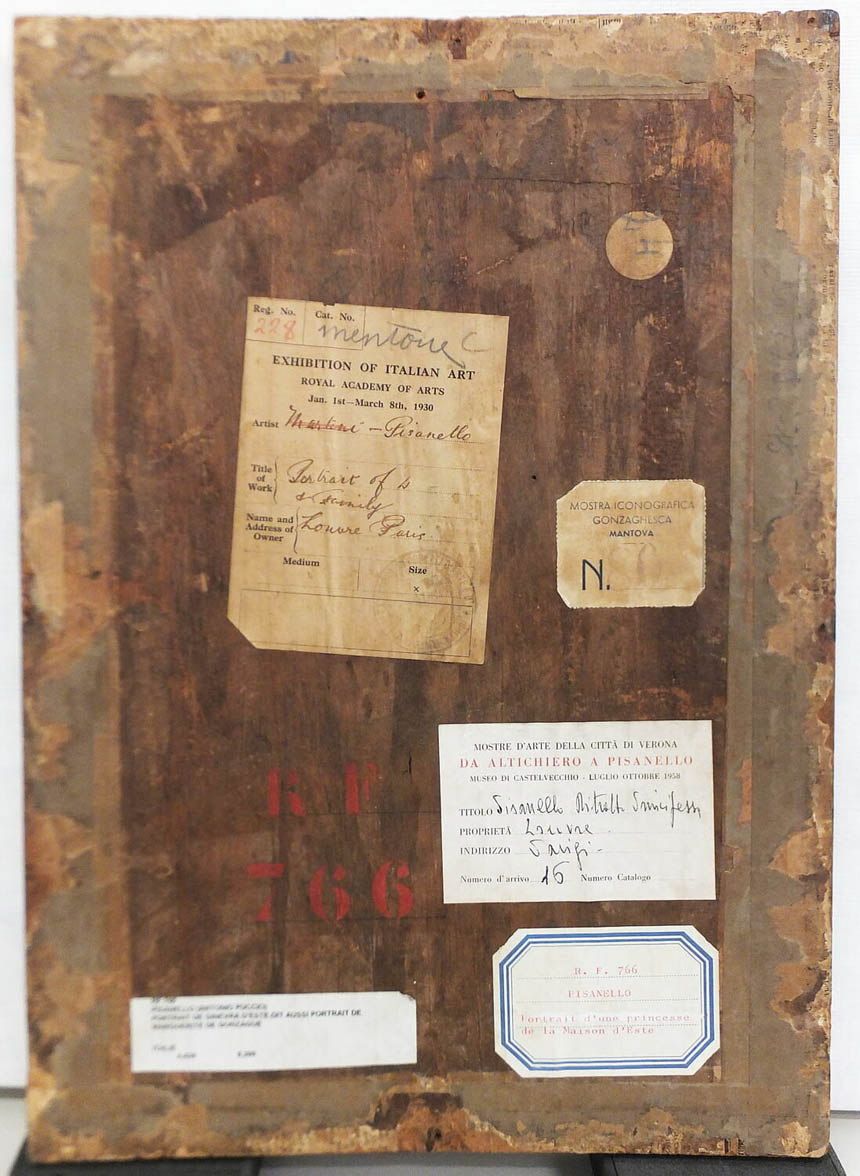 Reg. No. Cat. No.
228 mentone C
EXHIBITION OF ITALIAN ART
ROYAL ACADEMY OF ARTS
Jan. 1st—March 8th, 1930
Artist Martini – Pisanello
Title of Work Portrait of
Family
Name and Address of Owner Louvre Paris
Medium Size
×
MOSTRA ICONOGRAFICA
GONZAGHESCA
MANTOVA
N.
R F
766
MOSTRE D'ARTE DELLA CITTÀ DI VERONA
DA ALTICHIERO A PISANELLO
MUSEO DI CASTELVECCHIO - LUGLIO OTTOBRE 1958
TITOLO Pisanello
PROPRIETÀ Louvre
INDIRIZZO Parigi -
Numero d'arrivo 16 Numero Catalogo
R. F. 766
PISANELLO
Portrait d'une princesse
de la Maison d'Este
PORTRAIT DE GINEVRA D'ESTE DIT AUSSI PORTRAIT DE
MARGUERITE DE GONZAGUE